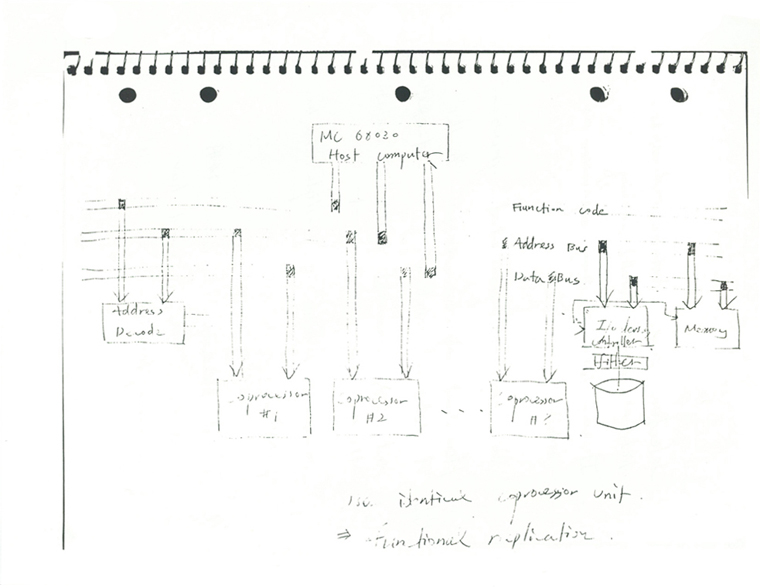 MC 68020
Host computer
Function code
Address Bus
Data Bus
Address
Decode
Memory
controller
coprocessor
#1
coprocessor
#2
coprocessor
. . . .
identical coprocessor unit.
⇒ functional replication.